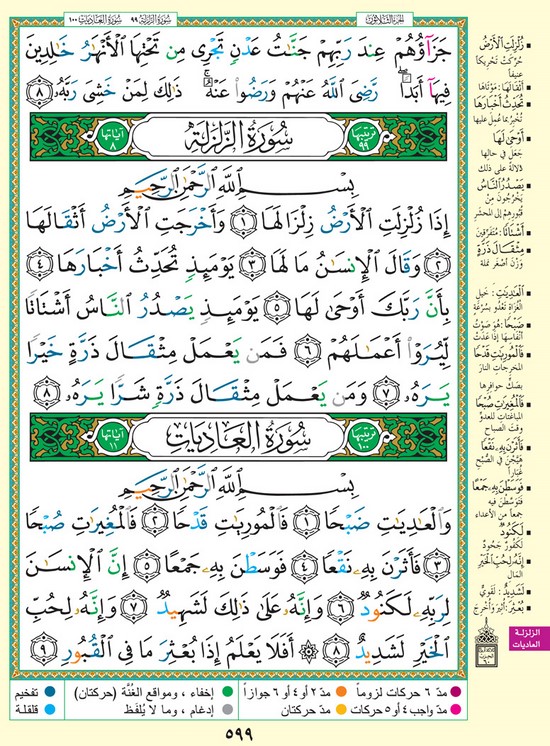 سُورَةُ الزَّلْزَلَةِ ٩٩
سُورَةُ العَادِيَاتِ ١٠٠
الجُزءُ الثَّلَاثُونَ
جَزَآؤُهُمْ عِندَ رَبِّهِمْ جَنَّٰتُ عَدْنٍ تَجْرِى مِن تَحْتِهَا ٱلْأَنْهَٰرُ خَٰلِدِينَ
فِيهَآ أَبَدًا ۖ رَّضِىَ ٱللَّهُ عَنْهُمْ وَرَضُوا۟ عَنْهُ ۚ ذَٰلِكَ لِمَنْ خَشِىَ رَبَّهُۥ ٨
ترتيبها ٩٩ سُورَةُ الزَّلْزَلَةِ آياتها ٨
بِسْمِ ٱللَّهِ ٱلرَّحْمَٰنِ ٱلرَّحِيمِ
إِذَا زُلْزِلَتِ ٱلْأَرْضُ زِلْزَالَهَا ١ وَأَخْرَجَتِ ٱلْأَرْضُ أَثْقَالَهَا
٢ وَقَالَ ٱلْإِنسَٰنُ مَا لَهَا ٣ يَوْمَئِذٍ تُحَدِّثُ أَخْبَارَهَا ٤
بِأَنَّ رَبَّكَ أَوْحَىٰ لَهَا ٥ يَوْمَئِذٍ يَصْدُرُ ٱلنَّاسُ أَشْتَاتًا
لِّيُرَوْا۟ أَعْمَٰلَهُمْ ٦ فَمَن يَعْمَلْ مِثْقَالَ ذَرَّةٍ خَيْرًا
يَرَهُۥ ٧ وَمَن يَعْمَلْ مِثْقَالَ ذَرَّةٍ شَرًّا يَرَهُۥ ٨
ترتيبها ١٠٠ سُورَةُ العَادِيَاتِ آياتها ١١
بِسْمِ ٱللَّهِ ٱلرَّحْمَٰنِ ٱلرَّحِيمِ
وَٱلْعَٰدِيَٰتِ ضَبْحًا ١ فَٱلْمُورِيَٰتِ قَدْحًا ٢ فَٱلْمُغِيرَٰتِ صُبْحًا
٣ فَأَثَرْنَ بِهِۦ نَقْعًا ٤ فَوَسَطْنَ بِهِۦ جَمْعًا ٥ إِنَّ ٱلْإِنسَٰنَ
لِرَبِّهِۦ لَكَنُودٌ ٦ وَإِنَّهُۥ عَلَىٰ ذَٰلِكَ لَشَهِيدٌ ٧ وَإِنَّهُۥ لِحُبِّ
ٱلْخَيْرِ لَشَدِيدٌ ٨ ۞ أَفَلَا يَعْلَمُ إِذَا بُعْثِرَ مَا فِى ٱلْقُبُورِ ٩
زُلْزِلَتِ ٱلْأَرْضُ
حُرِّكَتْ تَحْرِيكًا
عنيفًا
أَثْقَالَهَا: مَوْتَاهَا
تُحَدِّثُ أَخْبَارَهَا
تُخْبِرُ بما عُمِلَ عليها
أَوْحَىٰ لَهَا
جَعَلَ في حالِها
دَلالةً على ذلك
يَصْدُرُ ٱلنَّاسُ
يَخْرُجُونَ مِنْ
قُبُورِهِمْ إلى المحشر
أَشْتَاتًا: مُتَفَرِّقِينَ
مِثْقَالَ ذَرَّةٍ
وَزْنَ أصْغَرِ نملة
ٱلْعَٰدِيَٰتِ: خيلِ
الغُزاةِ تَعْدُو بسُرْعَةٍ
ضَبْحًا: هو صَوْتُ
أنفاسِها إذا عَدَتْ
فَٱلْمُورِيَٰتِ قَدْحًا
المخرجاتِ النارَ
بصَكِّ حوافِرِها
فَٱلْمُغِيرَٰتِ صُبْحًا
المباغتاتِ للعدوِّ
وقتَ الصباح
فَأَثَرْنَ بِهِۦ نَقْعًا
هَيَّجْنَ في الصُّبْحِ
غُبَارًا
فَوَسَطْنَ بِهِۦ جَمْعًا
فَتَوَسَّطْنَ فيه
جمعًا من الأعداء
لَكَنُودٌ
لَكَفُورٌ جَحُودٌ
وَإِنَّهُۥ لِحُبِّ ٱلْخَيْرِ
المال
لَشَدِيدٌ: لَقَوِيٌّ
بُعْثِرَ: أُثِيرَ وأُخْرِجَ
الزلزلة
العاديات
مدّ ٦ حركات لزوماً
مدّ ٢ أو ٤ أو ٦ جوازاً
إخفاء، ومواقع الغُنَّة (حركتان)
تفخيم
مدّ واجب ٤ أو ٥ حركات
مدّ حركتان
إدغام، وما لا يُلفَظ
قلقلة
٥٩٩